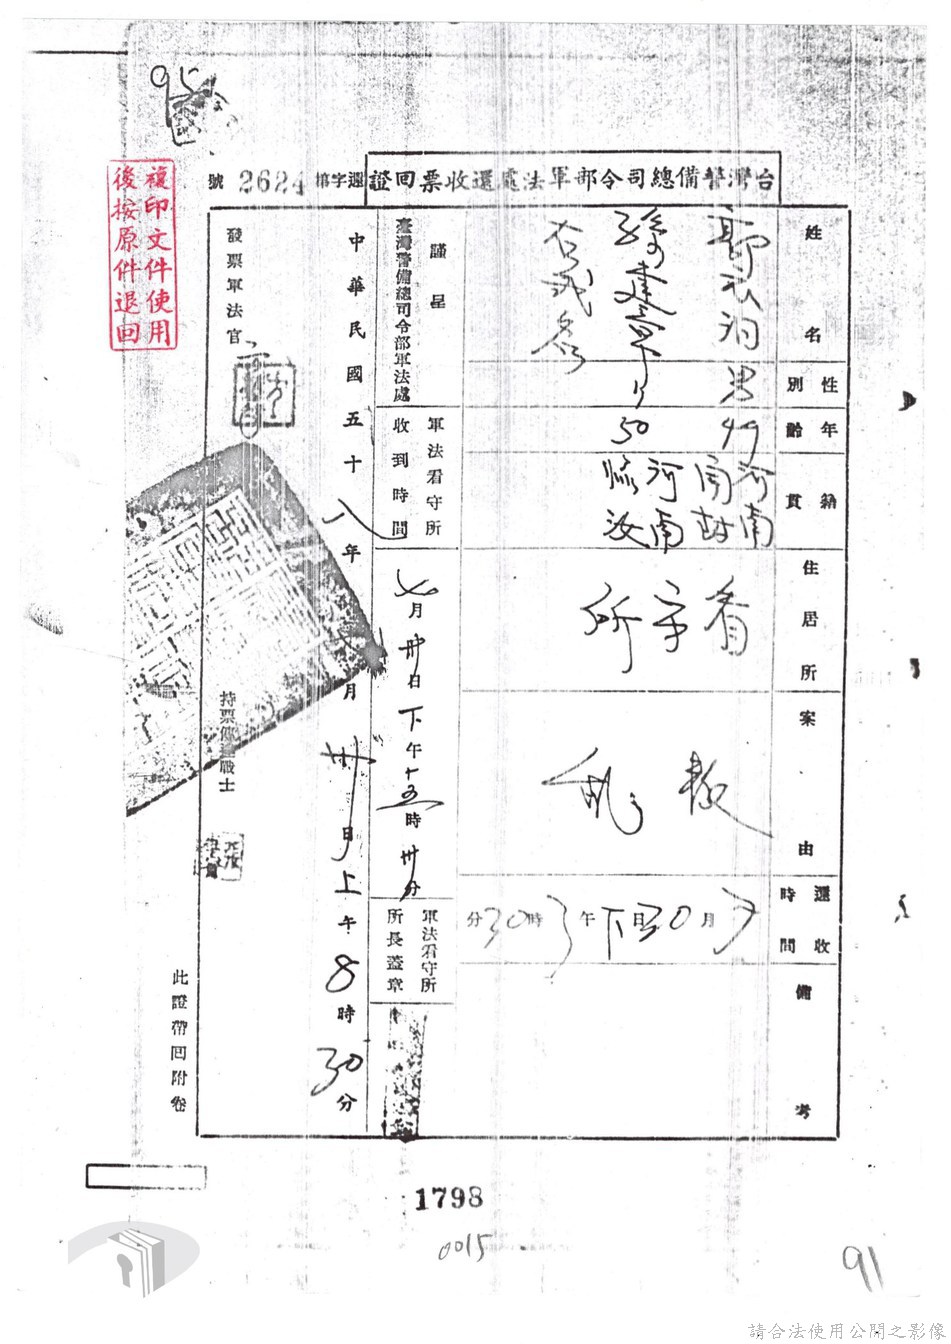 95
複印文件使用
後按原件退回
台灣警備總司令部軍法處還收票回證
還字第2624號
姓名
郭衣洞
孫建章
右貳名
性別
男
〃
年齡
49
50
籍貫
河南開封
河南臨汝
住居所
看守所
案由
叛亂
還收時間
7月30日下午3時30分
備考
謹呈
臺灣警備總司令部軍法處
軍法看守所收到時間
七月卅日下午十五時卅分
軍法看守所所長蓋章
中華民國五十八年七月卅日上午8時30分
發票軍法官
持票傳達戰士
此證帶回附卷
1798
0015
91
請合法使用公開之影像